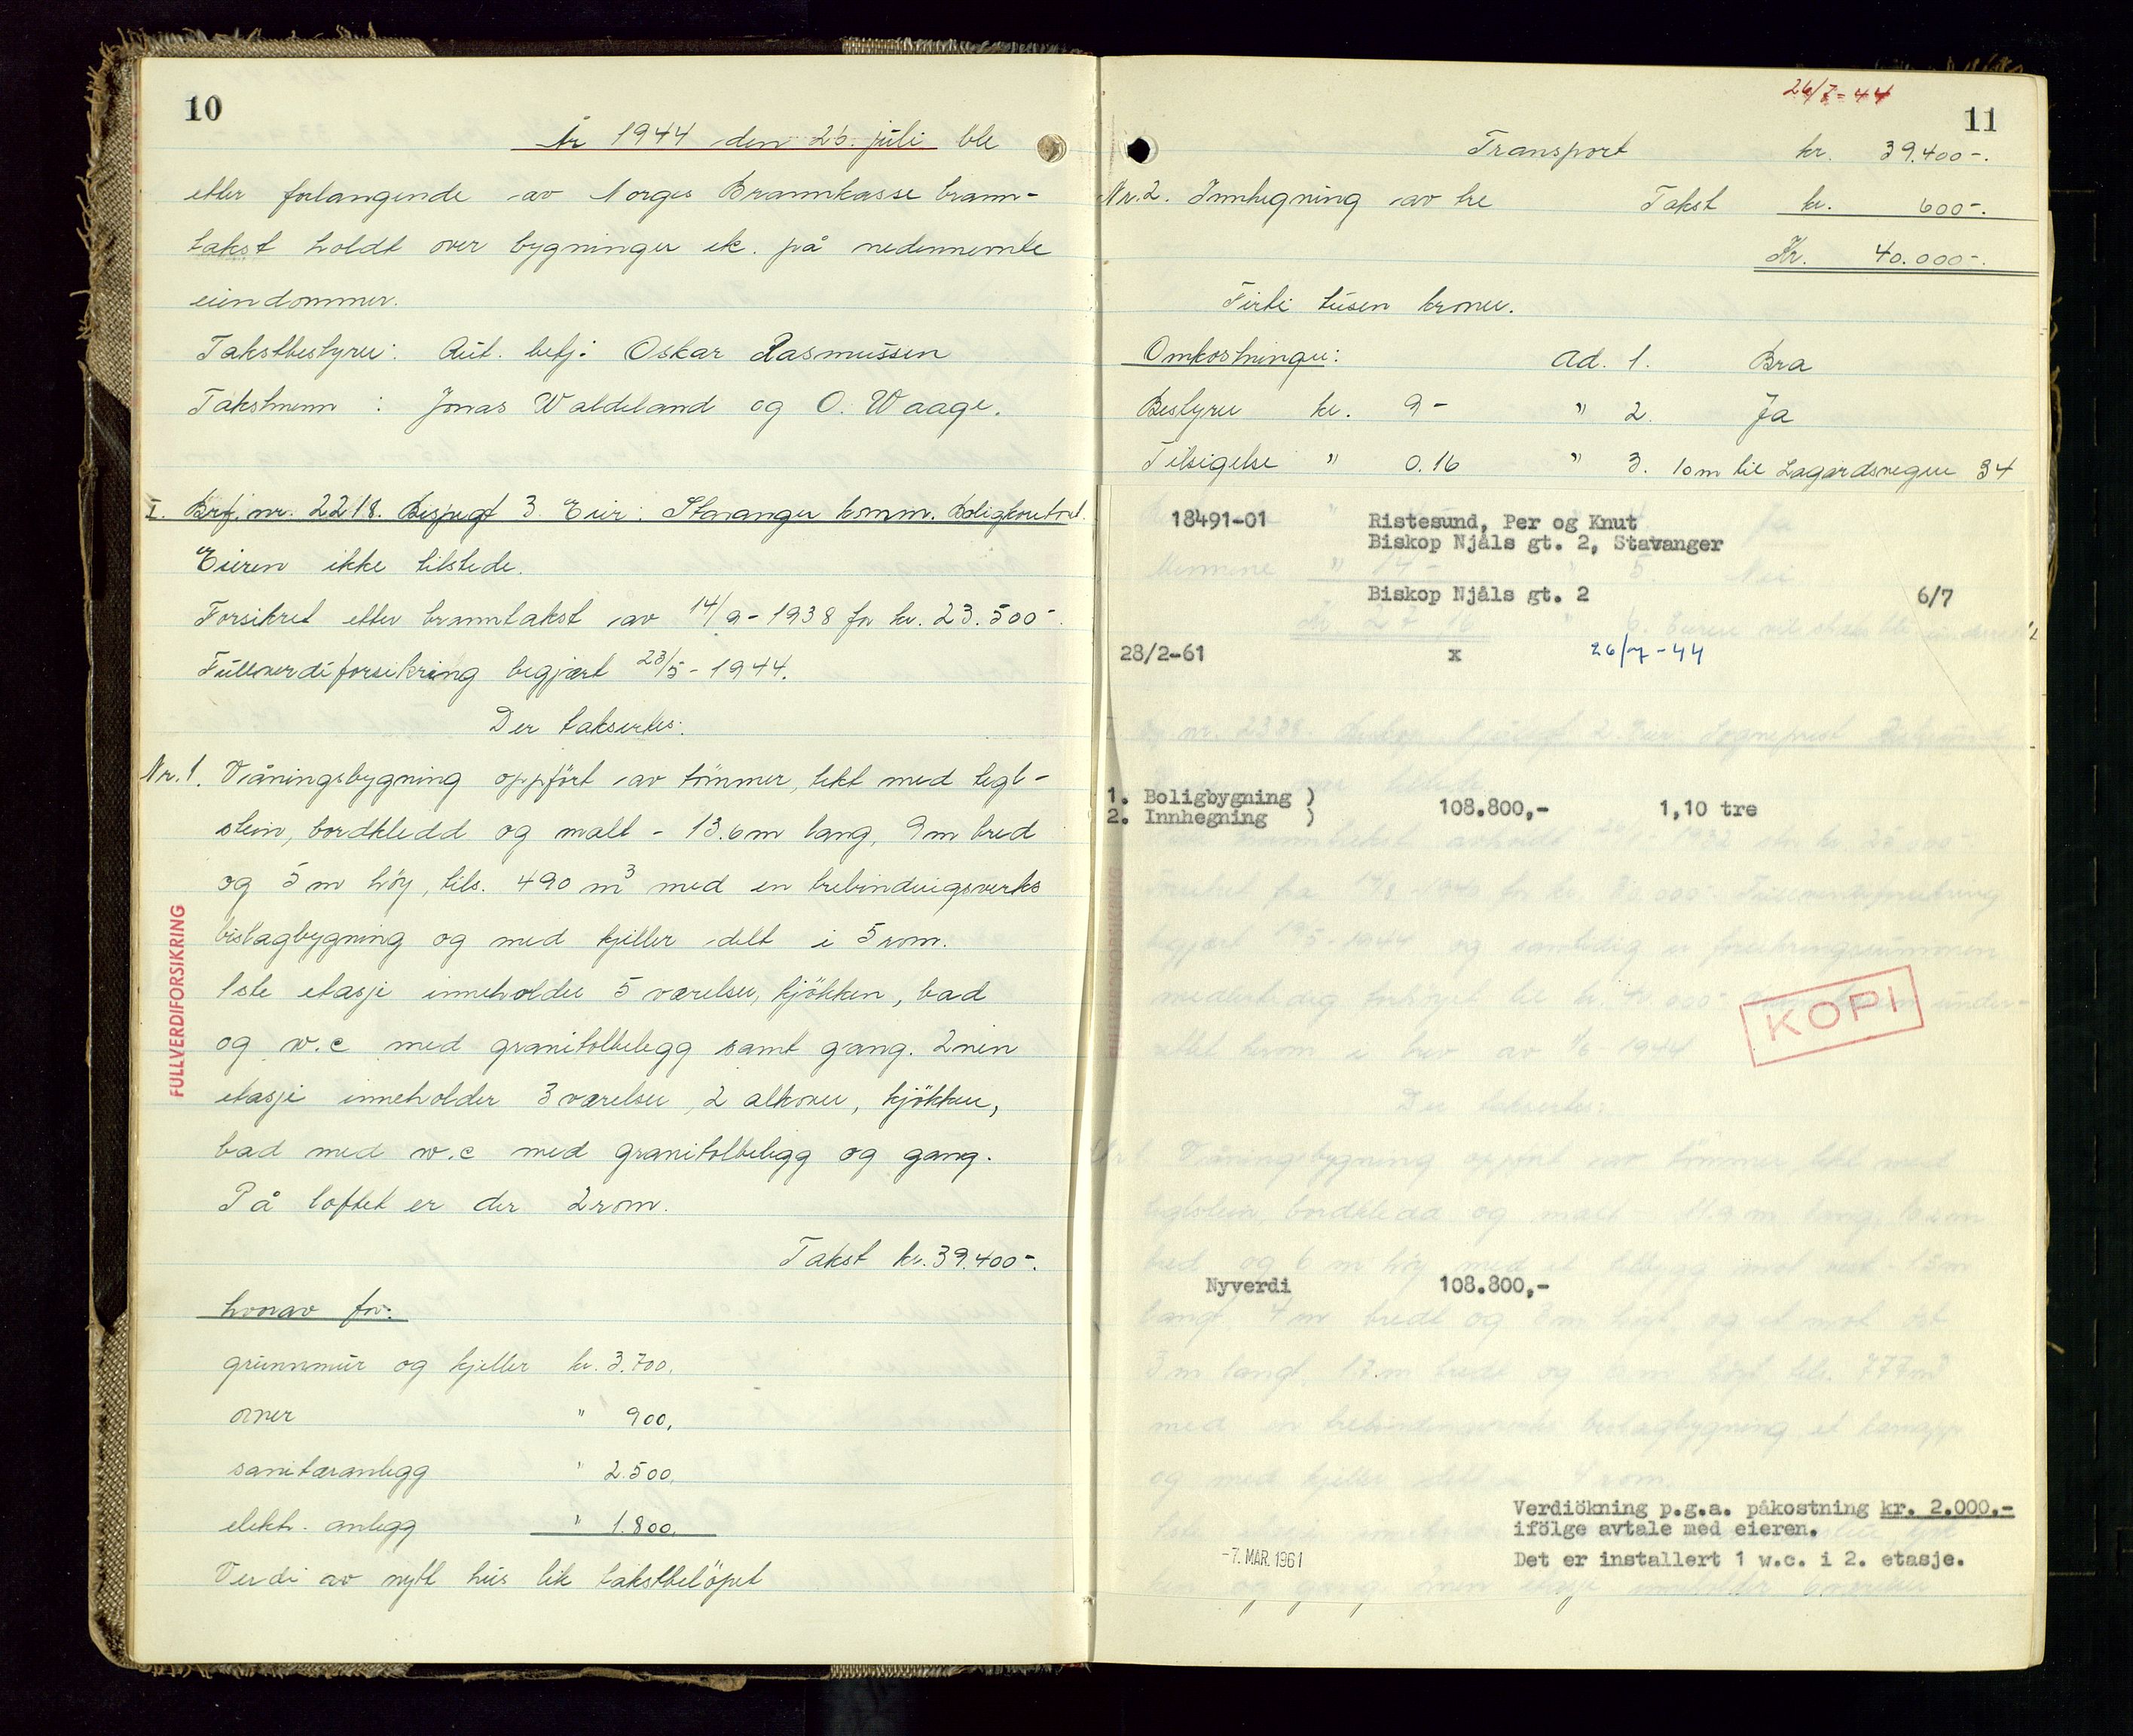 10
År 1944 den 26. juli ble
etter forlangende av Norges Brannkasse brann-
takst holdt over bygninger etc. på nedennemte
eiendommer.
Takstbestyrer: Aut. befj: Oskar Rasmussen
Takstmenn : Jonas Waldeland og O. Waage.
I. Brf. nr. 2218. Bispegt 3. Eier: Stavanger komm. Boligkontor.
Eieren ikke tilstede.
Forsikret etter branntakst av 14/9-1938 for kr. 23.500-.
Fullverdiforsikring begjært 23/5-1944.
Der takseertes:
Nr. 1. Våningsbygning oppført av tömmer, tekt med tegl-
stein, bordkledd og malt - 13.6m lang, 9m bred
og 5 m höy, tils. 490 m³ med en trebindingsverks
bislagbygning og med kjeller delt i 5 rom.
1ste etasje inneholder 5 værelser, kjökken, bad
og w.c med granitolbelegg samt gang. 2nen
etasje inneholder 3 værelser, 2 alkover, kjökken,
bad med w.c med granitolbelegg og gang.
På loftet er der 2 rom.
Takst kr. 39.400-.
hvorav for:
grunnmur og kjeller kr. 3.700,
ovner " 900,
sanitæranlegg " 2.500,
elektr. anlegg " 1.800,
Verdi av nytt hus lik takstbelöpet
FULLVERDIFORSIKRING
26/7-44
11
Transport kr. 39.400-.
Nr. 2. Innhegning av tre Takst kr. 600-.
Kr. 40.000-.
Firti tusen kroner.
Omkostninger: Ad. 1. Bra
Bestyrer kr. 9- " 2. Ja
Tilsigelse " 0.16 " 3. 10m til Lagårdsvegen 34
18491-01 Ristesund, Per og Knut
Biskop Njåls gt. 2, Stavanger
Biskop Njåls gt. 2 6/7
28/2-61 x 26/7-44
1. Boligbygning )
2. Innhegning ) 108.800,- 1,10 tre
KOPI
Nyverdi 108.800,-
Verdiökning p.g.a. påkostning kr. 2.000.-
ifölge avtale med eieren.
-7. MAR. 1961
Det er installert 1 w.c. i 2. etasje.